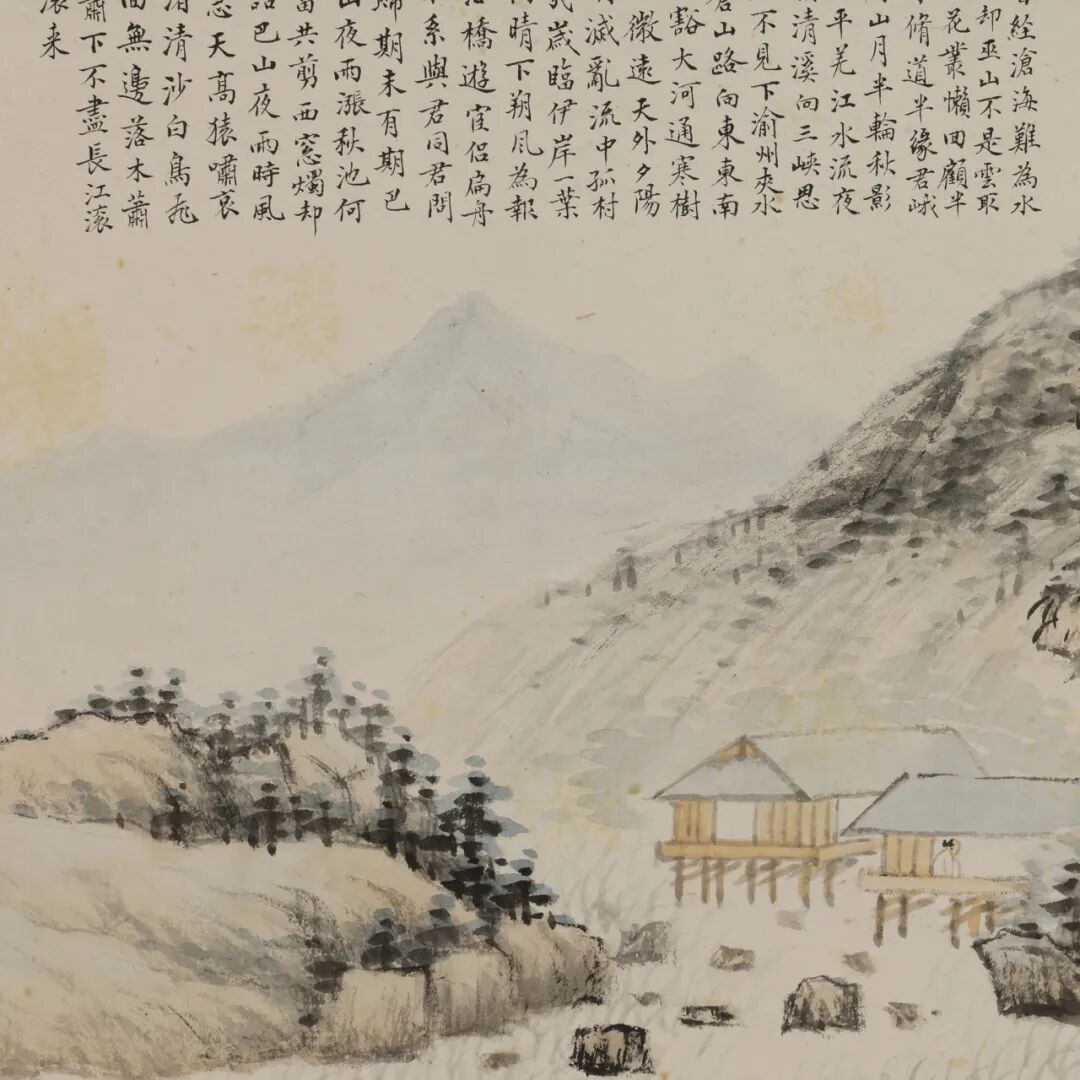 經滄海難為水
却巫山不是雲取
花叢懶回顧半
脩道半緣君峨
山月半輪秋影
平羌江水流夜
清溪向三峽思
不見下渝州夾水
蒼山路向東東南
豁大河通寒樹
微遠天外夕陽
滅亂流中孤村
歲臨伊岸一葉
晴下朔風為報
橋遊宦侶扁舟
系與君同君問
歸期未有期巴
山夜雨漲秋池何
當共剪西窓燭却
話巴山夜雨時風
急天高猿嘯哀
渚清沙白鳥飛
回無邊落木蕭
蕭下不盡長江滚
滚来